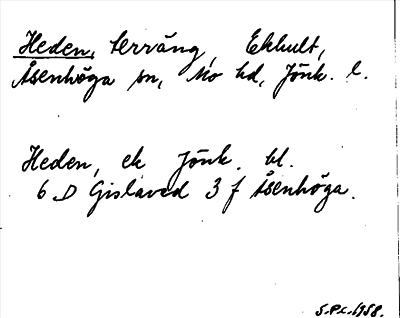 Heden, terräng, Ekhult,
Åsenhöga sn, Mo hd, Jönk. l.
Heden, ek Jönk. bl.
6 D Gislaved 3 f Åsenhöga.
S.P.L. 1958.